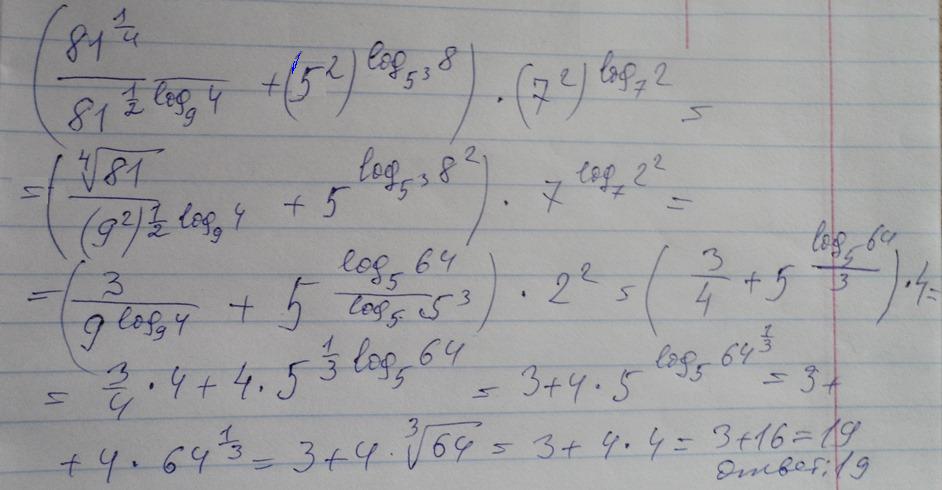 (81^(1/4) / 81^(1/2 log₉4) + (5²)^(log_(5³) 8)) · (7²)^(log₇2) =
= (⁴√81 / (9²)^(1/2 log₉4) + 5^(log_(5³) 8²)) · 7^(log₇2²) =
= (3 / 9^(log₉4) + 5^(log₅64 / log₅5³)) · 2² = (3/4 + 5^(log₅64 / 3)) · 4 =
= 3/4 · 4 + 4 · 5^(1/3 log₅64) = 3 + 4 · 5^(log₅64^(1/3)) = 3 +
+ 4 · 64^(1/3) = 3 + 4 · ³√64 = 3 + 4 · 4 = 3 + 16 = 19
Ответ: 19